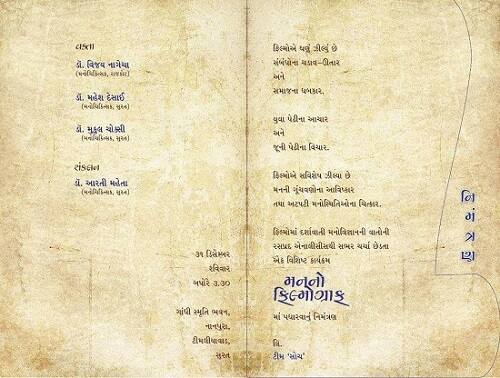 વક્તા
ડૉ. વિજય નાગેચા
(મનોચિકિત્સક, રાજકોટ)
ડૉ. મહેશ દેસાઈ
(મનોચિકિત્સક, સુરત)
ડૉ. મુકુલ ચોક્સી
(મનોચિકિત્સક, સુરત)
સંકલન
ડૉ. આરતી મહેતા
(મનોચિકિત્સક, સુરત)
૩૧ ડિસેમ્બર
રવિવાર
બપોરે ૩.૩૦
ગાંધી સ્મૃતિ ભવન,
નાનપુરા,
ટીમલીયાવાડ,
સુરત
ફિલ્મોએ ઘણું ઝીલ્યું છે
સંબંધોના ચડાવ-ઉતાર
અને
સમાજના ધબકાર.
યુવા પેઢીના આચાર
અને
જૂની પેઢીના વિચાર.
ફિલ્મોએ સવિશેષ ઝીલ્યા છે
મનની ગૂંચવણોના આવિષ્કાર
તથા અટપટી મનોસ્થિતિઓના ચિત્કાર.
ફિલ્મોમાં દર્શાવાતી મનોવિજ્ઞાનની વાતોની
રસપ્રદ એનાલીસીસથી સભર ચર્ચા છેડતા
એક વિશિષ્ટ કાર્યક્રમ
મનનો
ફિલ્મોગ્રાફ
માં પધારવાનું નિમંત્રણ
લિ.
ટીમ 'સોચ'
નિમંત્રણ